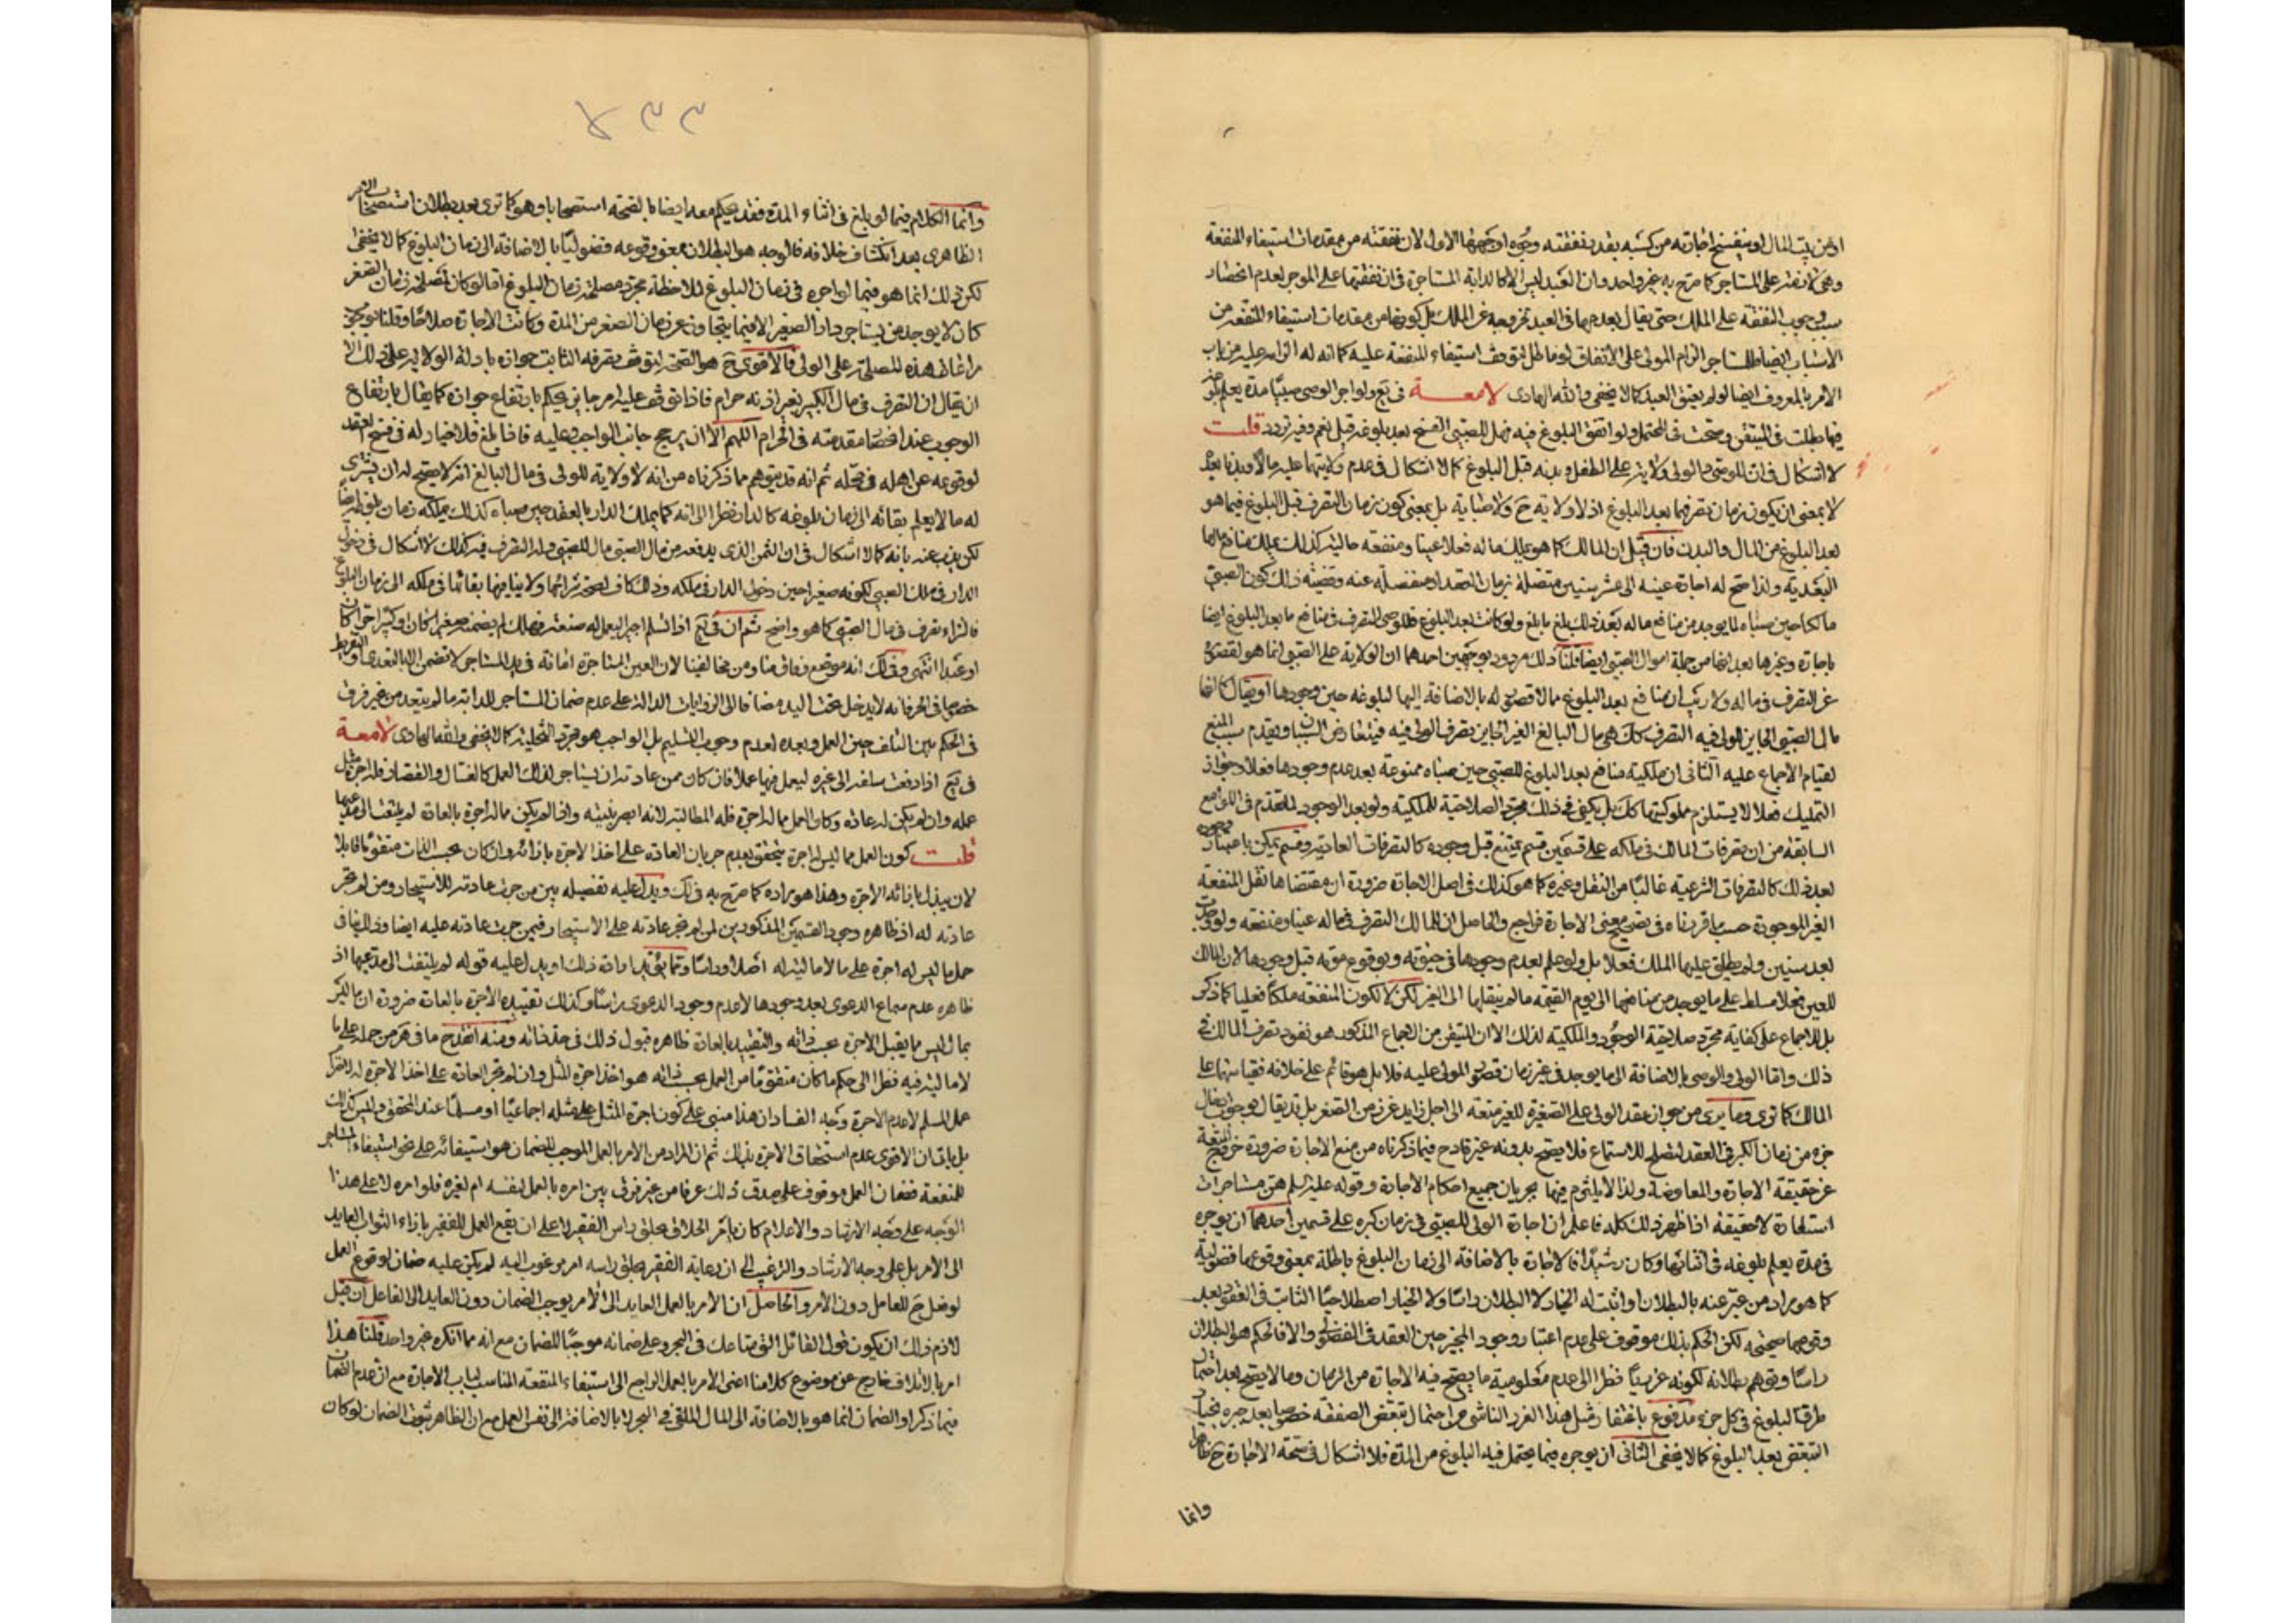 اذن بيت المال او ينفسخ اجارته من كسبه بقدر نفقته وجوه اوجهها الاول لان نفقته من مقدمات استيفاء المنفعة
وهي لا تفتقر على المستاجر كما صرح به غير واحد وان العبد ليس الا كالدابة المستاجرة فان نفقتها على الموجر لعدم انحصار
سبب وجوب النفقة على الملك حتى يقال بعدمها في العبد لخروجه عن الملك بل كونها من مقدمات استيفاء المنفعة من
الاسباب ايضا وللمستاجر الزام المولى على الانفاق لو ماطل لتوقف استيفاء المنفعة عليه كما انه له الزامه عليه من باب
الامر بالمعروف ايضا لو لم يعتق العبد كما لا يخفى والله الهادى لامعة في يع ولو اجر الوصي صبيا مدة يعلم بلوغه
فيها بطلت في المتيقن وصحت في المحتمل ولو اتفق البلوغ فيه فهل للصبي الفسخ بعد بلوغه قيل نعم وفيه تردد قلت
لا اشكال في ان للوصي والولى ولاية على الطفل و بدنه قبل البلوغ كما لا اشكال في عدم ولايتهما عليه مالا وبدنا بعده
لا بمعنى ان يكون زمان تصرفهما بعد البلوغ اذ لا ولاية ح ولا صباية بل بمعنى كون زمان التصرف قبل البلوغ فيما هو
بعد البلوغ من المال والبدن فان قيل ان المالك كما هو يملك ماله فعلا عينا ومنفعة حالية كذلك يملك منافع ماله
البعدية ولذا صح له اجارة عينه الى عشر سنين متصلة بزمان العقد او منفصلة عنه وقضية ذلك كون الصبي
مالكا حين صباه لما يوجد من منافع ماله بعد ذلك بلغ ما بلغ ولو كانت بعد البلوغ فللوصي التصرف في منافع ما بعد البلوغ ايضا
باجارة وغيرها بعد انها من جملة اموال الصبي ايضا قلنا ذلك مردود بوجهين احدهما ان الولاية على الصبي انما هو لقصوره
عن التصرف في ماله ولا ريب ان منافع بعد البلوغ مما لا قصور له بالاضافة اليها لبلوغه حين وجودها او يقال كما انها
مال الصبي الجايز للولى فيه التصرف كك هي مال البالغ الغير الجايز تصرف الولى فيه فيتعارض السببان ويقدم سبب المنع
لقيام الاجماع عليه الثانى ان ملكية منافع بعد البلوغ للصبي حين صباه ممنوعة بعد عدم وجودها فعلا وجواز
التمليك فعلا لا يستلزم مملوكيتها كك بل يكفي في ذلك مجرد الصلاحية للملكية ولو بعد الوجود للمتقدم في اللوامع
السابقة من ان تصرفات المالك في ملكه على قسمين قسم يمتنع قبل وجوده كالتصرفات العادية وقسم يمكن باعتبار وجوده
بعد ذلك كالتصرفات الشرعية غالبا من النقل وغيره كما هو كذلك في اصل الاجارة ضرورة ان مقتضاها نقل المنفعة
الغير الموجودة حسب ما قررناه في توضيح معنى الاجارة فراجع والحاصل ان للمالك التصرف في ماله عينا ومنفعة ولو وجدت
بعد سنين ولم يطلق عليها الملك فعلا بل ولو علم بعدم وجودها في حيوته وبوقوع موته قبل وجودها لان المالك
للعين فعلا مسلط على ما يوجد من منافعها الى يوم القيمة ما لم ينقلها الى الغير لكن لا لكون المنفعة ملكا فعليا كما ذكر
بل للاجماع على كفاية مجرد صلاحية الوجود والملكية لذلك الا ان المتيقن من الاجماع المذكور هو نفوذ تصرف المالك في
ذلك واما الولى والوصي بالاضافة الى ما يوجد في غير زمان قصور المولى عليه فلا بل هو قائم على خلافه فقياسهما على
المالك كما ترى وما يرى من جواز عقد الولى على الصغيرة للغير متعة الى اجل زايد عن زمن الصغر بل قد يقال بوجوب ادخال
جزء من زمان الكبر في العقد لتصلح للاستمتاع فلا يصح بدونه غير قادح فيما ذكرناه من منع الاجارة ضرورة خروج المتعة
عن حقيقة الاجارة والمعاوضة ولذا لا يلتزم فيها بجريان جميع احكام الاجارة وقوله عليه السلم هن مستاجرات
استعارة لا حقيقة اذا ظهر ذلك كله فاعلم ان اجارة الولى للصبي في زمان كبره على قسمين احدهما ان يوجره
في مدة يعلم بلوغه في اثنائها وكان رشيدا فالاجارة بالاضافة الى زمان البلوغ باطلة بمعنى وقوعها فضولية
كما هو مراد من عبر عنه بالبطلان او اثبت له الخيار لا البطلان راسا ولا الخيار اصطلاحيا الثابت في العقود بعد
وقوعها صحيحة لكن الحكم بذلك موقوف على عدم اعتبار وجود المجيز حين العقد في الفضولى والا فالحكم هو البطلان
راسا وتوهم بطلانه لكونه غرريا نظرا الى عدم معلومية ما يصح فيه الاجارة من الزمان وما لا يصح بعد احتمال
طرو البلوغ في كل جزء مدفوع باغتفار مثل هذا الغرر الناشي من احتمال تبعض الصفقة خصوصا بعد جبره بخيار
التبعض بعد البلوغ كما لا يخفى الثاني ان يوجره فيما يحتمل فيه البلوغ من المدة فلا اشكال في صحة الاجارة ح ظاهرا
وانما
وانما الكلام فيما لو بلغ في اثناء المدة فقد يحكم معه ايضا بالصحة استصحابا وهو كما ترى بعد بطلان استصحاب الامر
الظاهرى بعد انكشاف خلافه فالوجه هو البطلان بمعنى وقوعه فضوليا بالاضافة الى زمان البلوغ كما لا يخفى
لكن ذلك انما هو فيما لو اجره في زمان البلوغ لملاحظة مجرد مصلحة زمان البلوغ اما لو كان لمصلحة زمان الصغر
كان لا يوجد من يستاجر دار الصغير الا فيما يتجاوز عن زمان الصغر من المدة وكانت الاجارة صلاحا وقلنا بوجوب
مراعاة هذه المصلحة على الولى فالاقوى ح هو الصحة لتوقف تصرفه الثابت جوازه بادلة الولاية على ذلك الا
ان يقال ان التصرف في مال الكبير بغير اذنه حرام فاذا توقف عليه امر جايز يحكم بارتفاع جوازه كما يقال بارتفاع
الوجوب عند انحصار مقدمته في الحرام اللهم الا ان يرجح جانب الواجب وعليه فاذا بلغ فلا خيار له في فسخ العقد
لوقوعه عن اهله في محله ثم انه قد يتوهم مما ذكرناه من انه لا ولاية للولى في مال البالغ انه لا يصح له ان يشترى
له ما لا يعلم بقائه الى زمان بلوغه كالدار نظرا الى انه كما يملك الدار بالعقد حين صباه كذلك يملكه زمان بلوغه ايضا
لكن يذب عنه بانه كما لا اشكال في ان الثمن الذى يدفعه من مال الصبي مال للصبي وله التصرف فيه كذلك لا اشكال في دخول
الدار في ملك الصبي لكونه صغيرا حين دخول الدار في ملكه وذلك كاف لصحة شرائها ولا ينافيها بقائها في ملكه الى زمان البلوغ
فالشراء تصرف في مال الصبي كما هو واضح ثم ان في يع اذا تسلم اجيرا ليعمل له صنعة فهلك لم يضمنه صغيرا كان او كبيرا حرا كان
او عبدا انتهى وذلك انه موضع وفاق منا ومن مخالفينا لان العين المستاجرة امانة في يد المستاجر لا تضمن الا بالتعدى او التفريط
خصوصا في الحر فانه لا يدخل تحت اليد مضافا الى الروايات الدالة على عدم ضمان المستاجر للدابة ما لم يتعد من غير فرق
في الحكم بين التلف حين العمل وبعده لعدم وجوب التسليم بل الواجب هو مجرد التخلية كما لا يخفى والله الهادى لامعة
في يع اذا دفع سلعة الى غيره ليعمل فيها عملا فان كان ممن عادته ان يستاجر لذلك العمل كالغسال والقصار فله اجرة مثل
عمله وان لم يكن له عادة وكان العمل مما له اجرة فله المطالبة لانه ابصر بنيته وان لم يكن مما له اجرة بالعادة لم يلتفت الى مدعيها
قلت كون العمل مما ليس له اجرة يتحقق بعدم جريان العادة على اخذ الاجرة بازائه وان كان بحسب الذات متقوما قابلا
لان يبذل بازائه الاجرة وهذا هو مراده كما صرح به في لك ويدل عليه تفصيله بين من جرت عادته للاستيجار ومن لم تجر
عادته له اذ ظاهره وجود القسمين المذكورين لمن لم تجر عادته على الاستيجار فيمن جرت عادته عليه ايضا وذلك ينافى
حمل ما ليس له اجرة على ما لا مالية له اصلا وراسا ومما يؤيد ارادة ذلك او يدل عليه قوله لم يلتفت الى مدعيها اذ
ظاهره عدم سماع الدعوى بعد وجودها لا عدم وجود الدعوى راسا وكذلك تقييده الاجرة بالعادة ضرورة ان ما ليس
بمال ليس ما يقبل الاجرة بحسب ذاته والتقييد بالعادة ظاهره قبول ذلك في حد ذاته ومنه انقدح ما في هر من حمله على ما
لا مالية فيه نظرا الى حكم ما كان متقوما من العمل بحسب ذاته هو اخذ اجرة المثل وان لم تجر العادة على اخذ الاجرة له لاحترام
عمل المسلم لا عدم الاجرة وجه الفساد ان هذا مبنى على كون اجرة المثل على مثله اجماعيا او مسلما عند المحقق وليس كذلك
بل باق ان الاقوى عدم استحقاق الاجرة بذلك ثم ان المراد من الامر بالعمل الموجب للضمان هو استيفائه على نحو استيفاء المستاجر
للمنفعة فضمان العمل موقوف على صدق ذلك عرفا من غير فرق بين امره بالعمل لنفسه ام لغيره فلو امره لا على هذا
الوجه على وجه الارشاد والاعلام كان يامر الحلاق بحلق راس الفقير لا على ان يقع العمل للفقير بازاء الثواب العايد
الى الامر بل على وجه الارشاد والترغيب الى ان رعاية الفقير بحلق راسه امر مرغوب اليه لم يكن عليه ضمان لوقوع العمل
لو فعل ح للعامل دون الامر والحاصل ان الامر بالعمل العايد الى الامر يوجب الضمان دون العايد الى الفاعل ان قيل
لازم ذلك ان يكون قول القائل الق متاعك في البحر وعلى ضمانه موجبا للضمان مع انه مما انكره غير واحد قلنا هذا
امر بالاتلاف خارج عن موضوع كلامنا اعنى الامر بالعمل الراجع الى استيفاء المنفعة المناسب لباب الاجارة مع ان عدم الضمان
فيما ذكر او الضمان انما هو بالاضافة الى المال الملقى في البحر لا بالاضافة الى نفس العمل مع ان الظاهر ثبوت الضمان لو كان